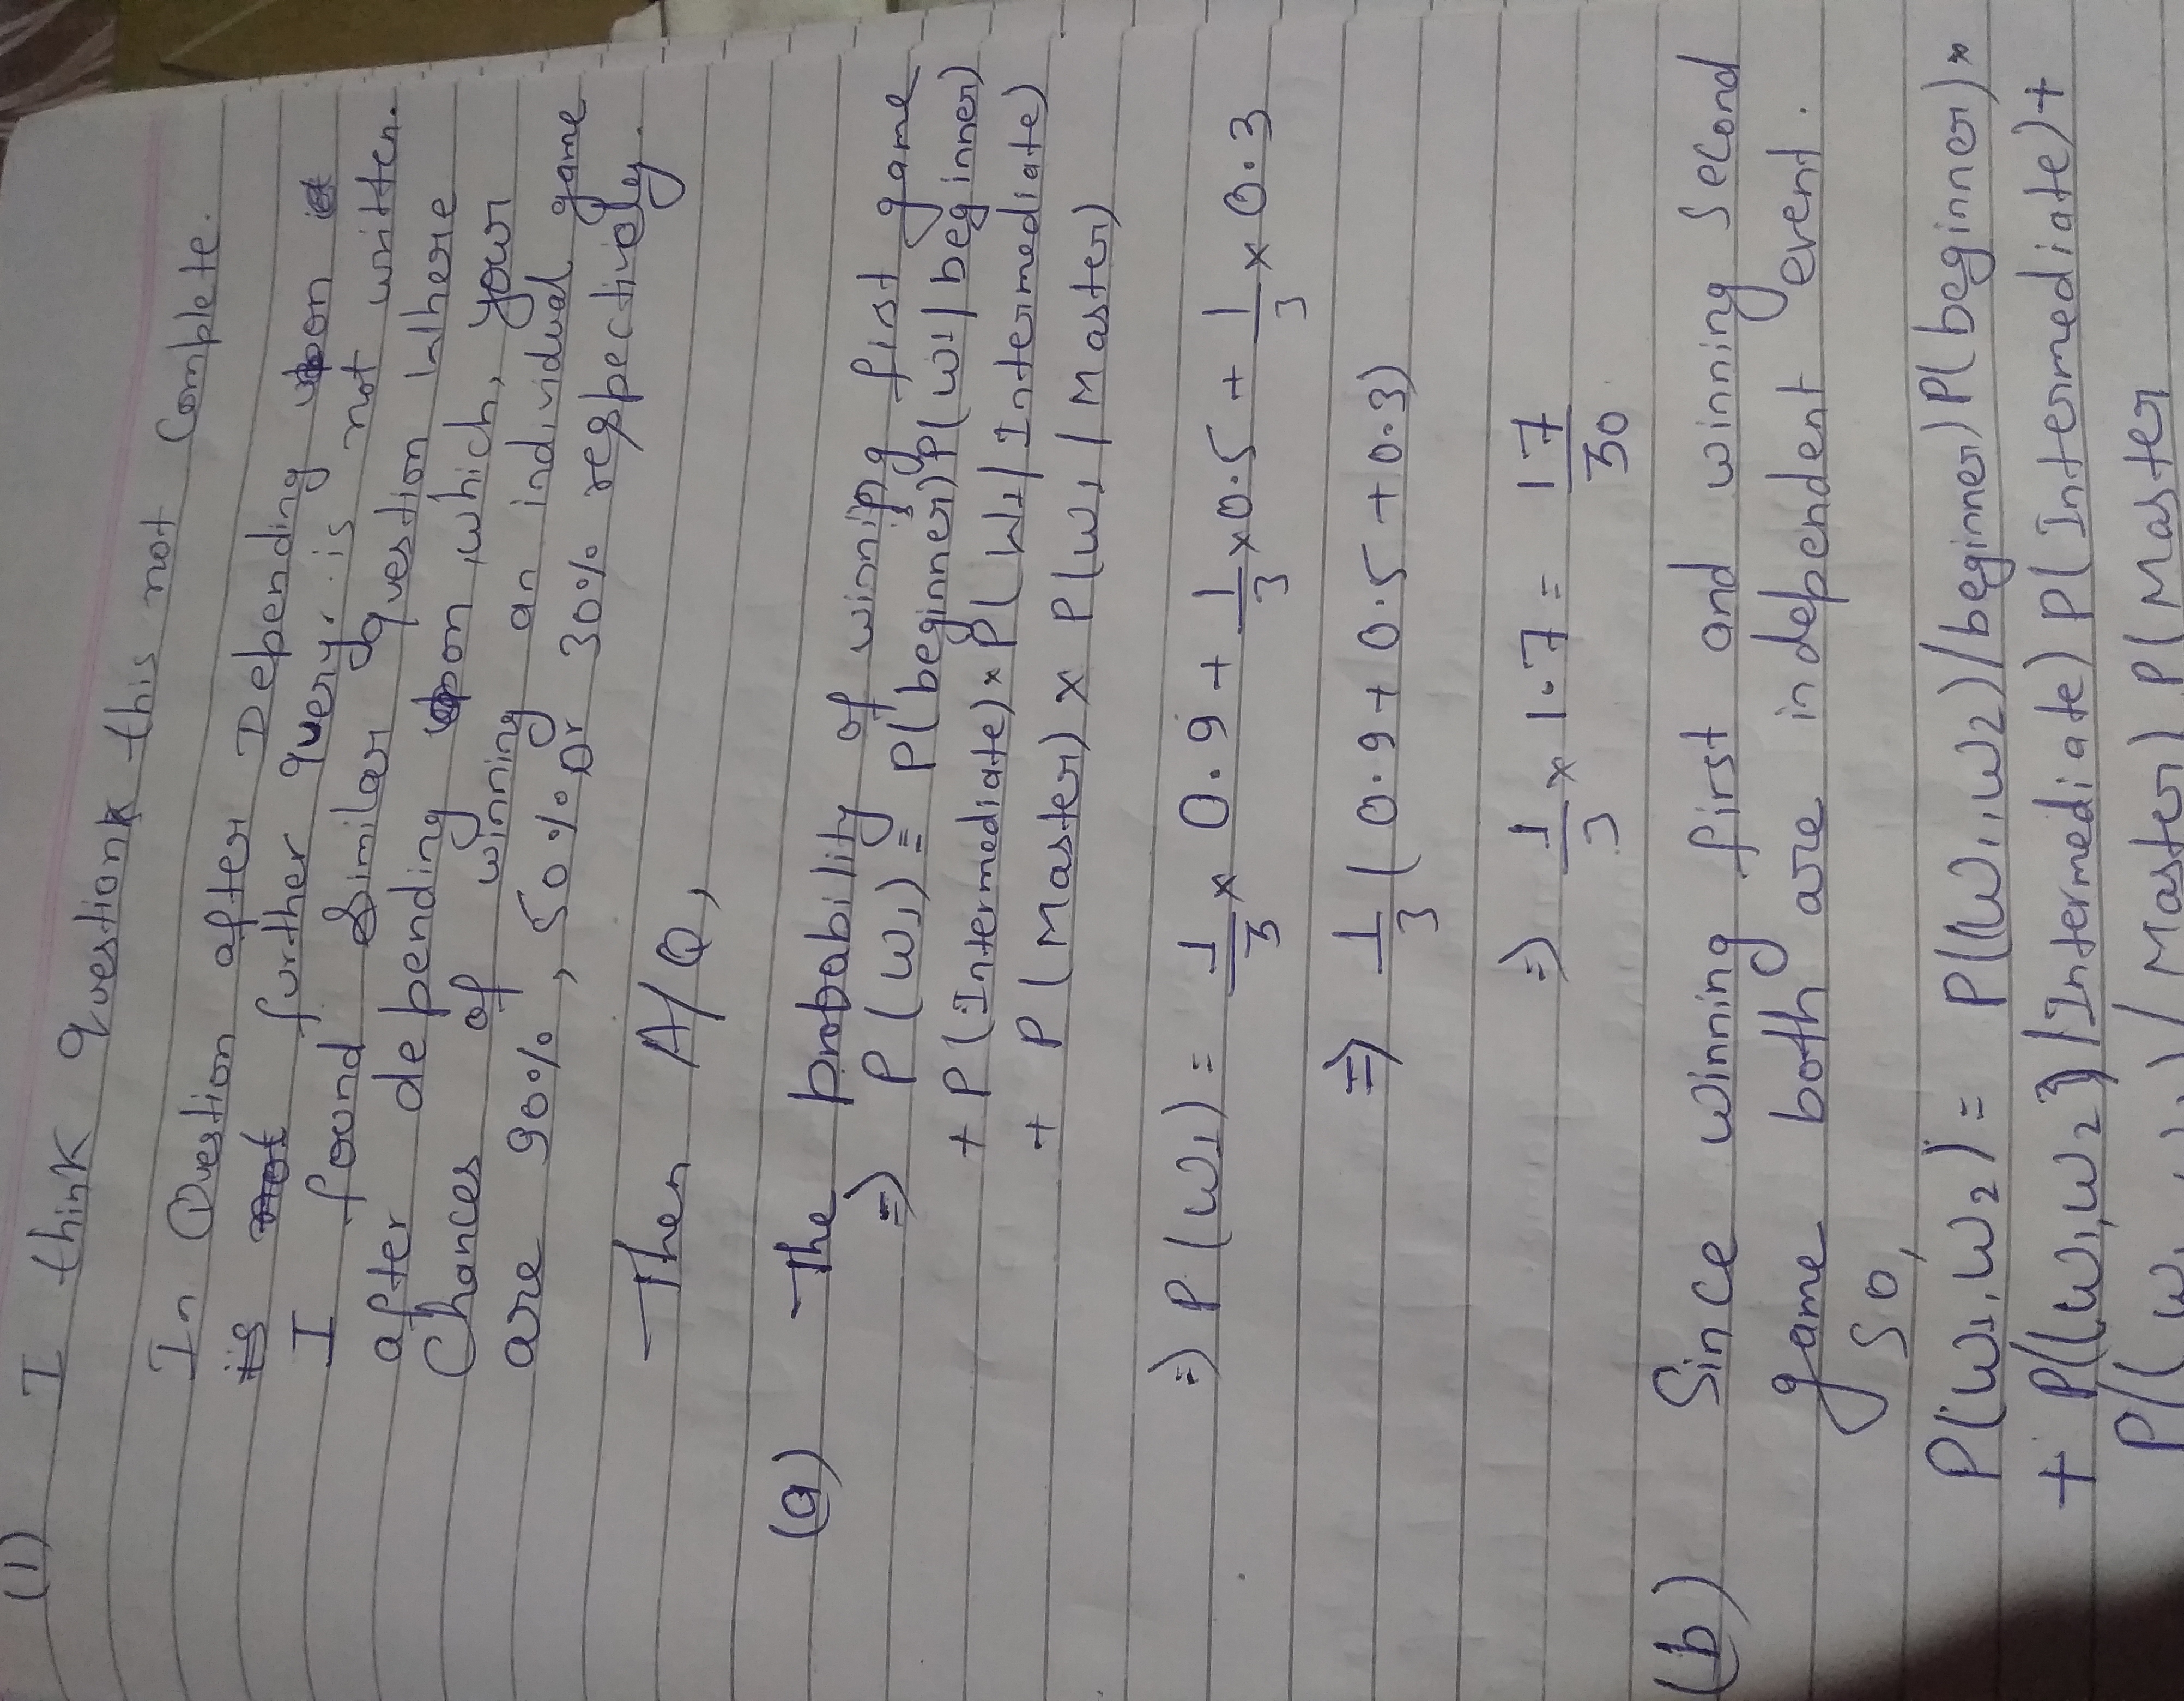 (1) I think Question this not Complete.
In Question after Depending upon
further query. is not written.
I found Similar question Where
after depending upon, which, your
Chances of winning an individual game
are 90%, 50% or 30% respectively.
Then A/Q,
(a) The probability of winning first game
=> P(W1) = P(beginner) P(W1/beginner)
+ P(Intermediate) × P(W1/Intermediate)
+ P(Master) × P(W1/Master)
=> P(W1) = 1/3 × 0.9 + 1/3 × 0.5 + 1/3 × 0.3
=> 1/3 (0.9 + 0.5 + 0.3)
=> 1/3 × 1.7 = 17/30
(b) Since winning first and winning Second
game both are independent event.
So,
P(W1, W2) = P((W1, W2)/beginner) P(beginner) ×
+ P((W1, W2)/Intermediate) P(Intermediate) +
P((W /Master) P(Master